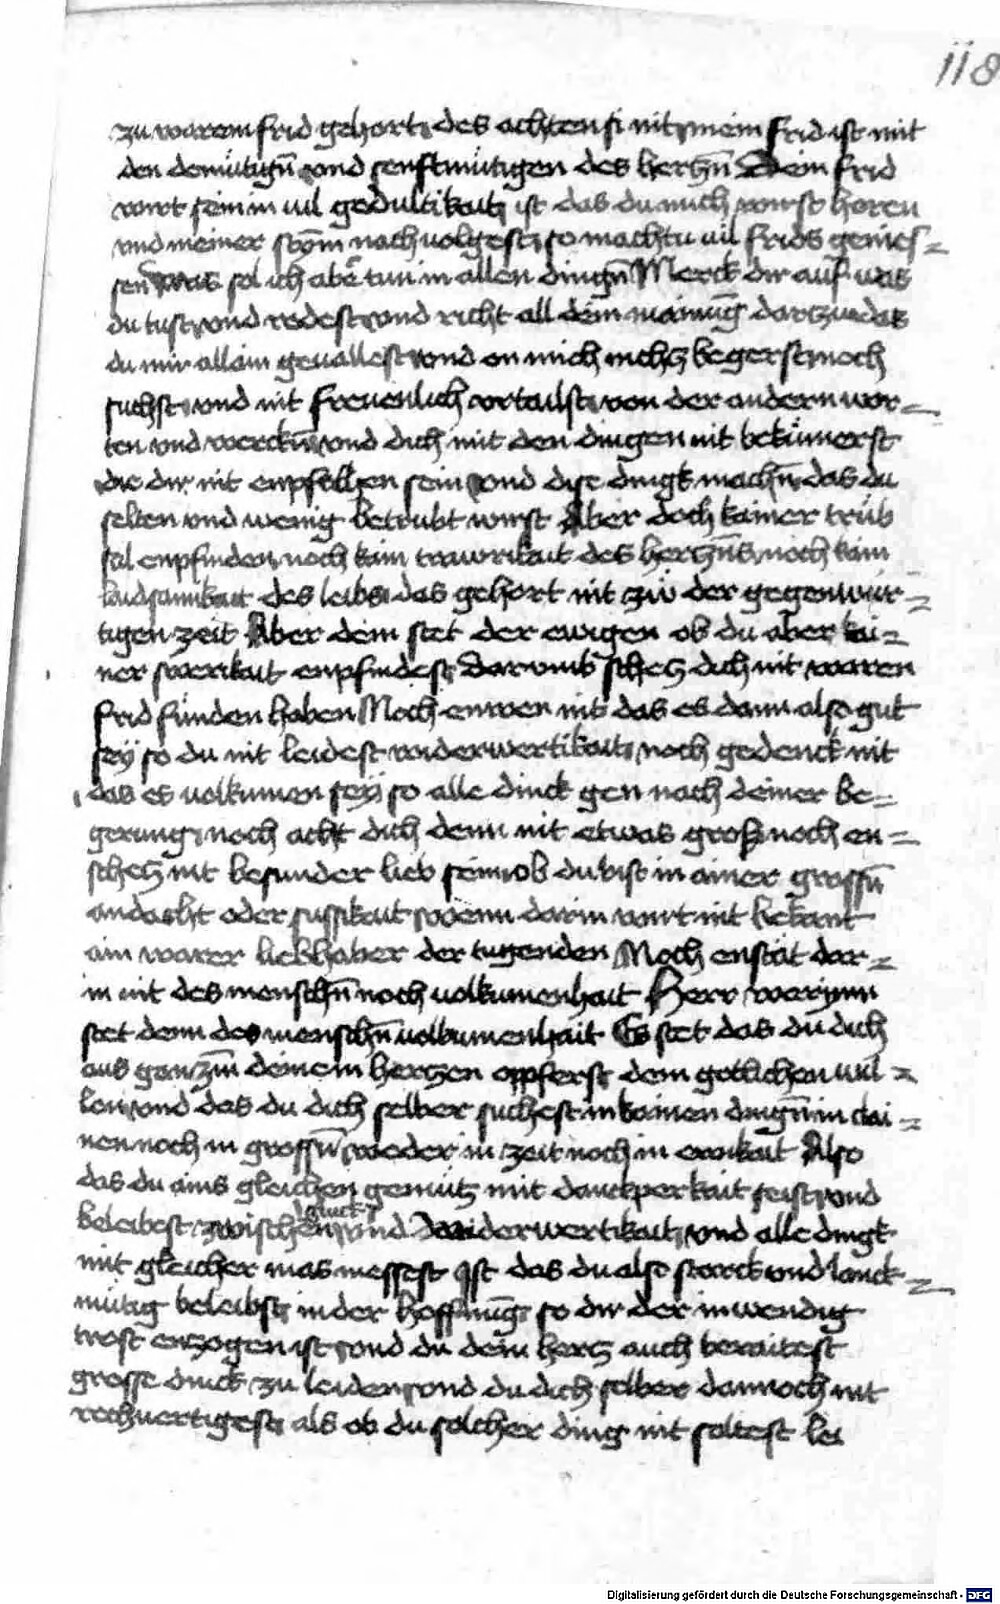 118
zu warem frid gehort des achten si nit mein frid ist mit
den demütign̄ vnd senftmütigen des hertzn̄ Dein frid
wirt sein in uil gedultikait ist das du mich wirst horen
vnd meiner stym̄ nachuolgest so machtu uil frids genies=
sen Was sol ich aber tun in allen dingn̄ Merck dir auf was
du tust vnd redest vnd richt all dein mainūg dartzu das
du mir allain geuallest vnd on mich nichtz begerst noch
suchst vnd nit freuenlich vrtailst von der andern wor=
ten vnd wercken vnd dich mit den dingen nit bekümerst
die dir nit enpfollhen sein vnd dise dingk machn̄ das du
selten vnd wenig betrubt wirst Aber doch kainer trüb
sal enpfinden noch kain trawrikait des hertzn̄s noch kain
laidsamkait des leibs das gehort nit zů der gegenwür=
tigen zeit Aber dem stet der ewigen ob du aber kai=
ner swerikait enpfindest darumb schetz dich nit waren
frid funden haben Noch enwen nit das es dann also gut
sey so du nit leidest widerwertikait noch gedenck nit
das es uolkumen sey so alle dinck gen nach deiner be=
gerung noch acht dich denn nit etwas groß noch en=
schetz nit besunder lieb sein ob du bist in ainer grossn̄
andacht oder sussikait wenn darin wirt nit bekant
ain warer liebhaber der tugenden Noch enstät dar=
in nit des menschn̄ noch uolkumenhait Herr warynn
stet denn des menschn̄ uolkumenhait Es stet das du dich
aus gantzm̄ deinem hertzen opferst dem gotlichen wil=
len vnd das du dich selber suchest in kainen dingn̄ in clai=
nen noch in grossn̄ weder in zeit noch in ewikait Also
das du ains gleichen gemütz mit danckperkait seist vnd
gluck
beleibest zwischen vnd widerwertikait vnd alle dingk
mit gleicher mas messest Ist das du also starck vnd lanck=
mütig beleibst in der hoffnūg so dir der inwendig
trost enzogen ist vnd du dein hertz auch beraitest
grosse dinck zu leiden vnd du dich selber dannoch nit
rechuertigest als ob du solcher ding nit soltest lei
Digitalisierung gefördert durch die Deutsche Forschungsgemeinschaft - DFG